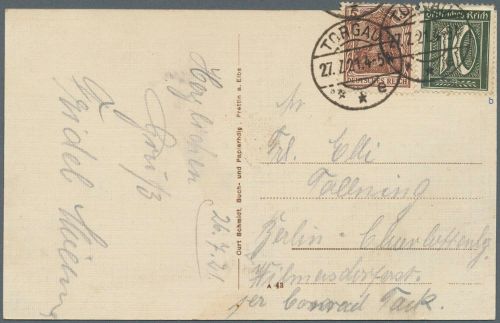 Herzlichen
Gruß
26.7.21.
Curt Schmidt, Buch- und Papierhdlg., Prettin a. Elbe
A 43
TORGAU
27.7.21.4-5
* * e
DEUTSCHES REICH
Deutsches Reich
An
Frl. Elli
Berlin-Charlottenbg
Wilmersdorferst.
per Conrad Tack.
b